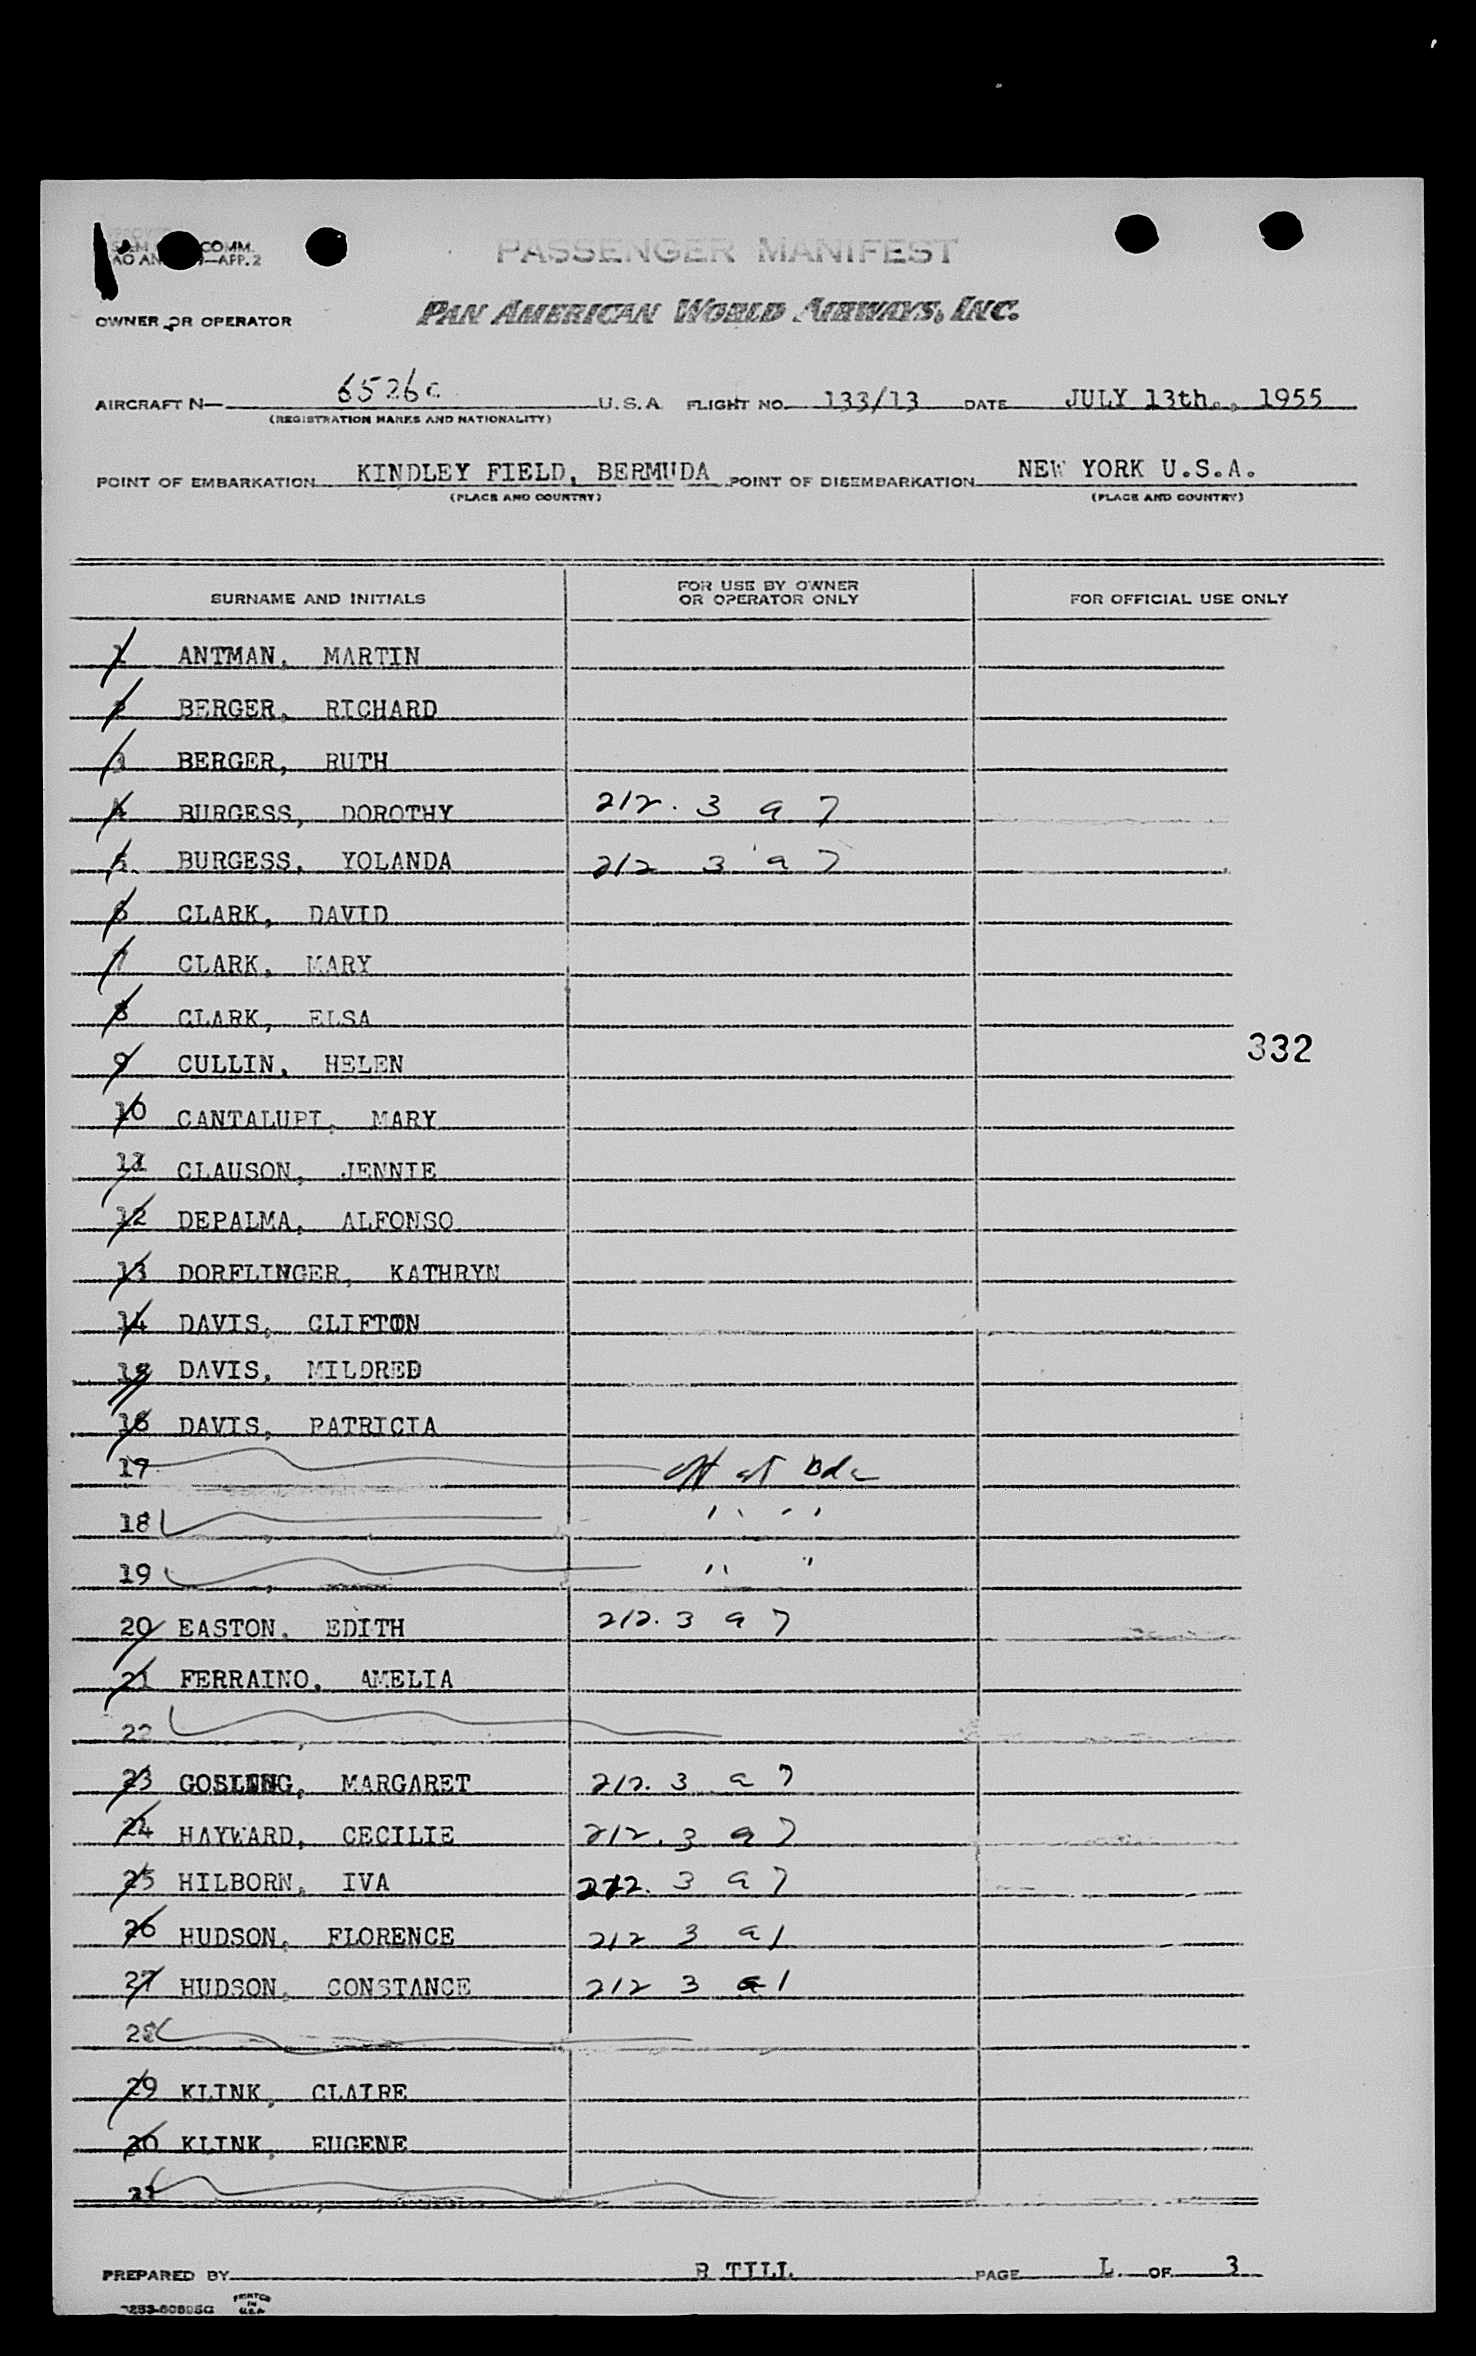 COMM.
—APP.2
PASSENGER MANIFEST
OWNER OR OPERATOR
PAN AMERICAN WORLD AIRWAYS, INC.
AIRCRAFT N— 6526c U.S.A FLIGHT NO. 133/13 DATE JULY 13th., 1955
(REGISTRATION MARKS AND NATIONALITY)
POINT OF EMBARKATION KINDLEY FIELD, BERMUDA POINT OF DISEMBARKATION NEW YORK U.S.A.
(PLACE AND COUNTRY) (PLACE AND COUNTRY)
SURNAME AND INITIALS FOR USE BY OWNER OR OPERATOR ONLY FOR OFFICIAL USE ONLY
1 ANTMAN, MARTIN
2 BERGER, RICHARD
3 BERGER, RUTH
4 BURGESS, DOROTHY 212. 3 a 7
5 BURGESS, YOLANDA 212 3 a 7
6 CLARK, DAVID
7 CLARK, MARY
8 CLARK, ELSA
332
9 CULLIN, HELEN
10 CANTALUPI, MARY
11 CLAUSON, JENNIE
12 DEPALMA, ALFONSO
13 DORFLINGER, KATHRYN
14 DAVIS, CLIFTON
15 DAVIS, MILDRED
16 DAVIS, PATRICIA
17 off at Bda
18 " "
19 " "
20 EASTON, EDITH 212. 3 a 7
21 FERRAINO, AMELIA
22
23 GOSLING, MARGARET 212. 3 a 7
24 HAYWARD, CECILIE 212. 3 a 7
25 HILBORN, IVA 212. 3 a 7
26 HUDSON, FLORENCE 212 3 a 1
27 HUDSON, CONSTANCE 212 3 a 1
28
29 KLINK, CLAIRE
30 KLINK, EUGENE
31
PREPARED BY R TILL PAGE L. OF 3
PRINTED IN U.S.A.